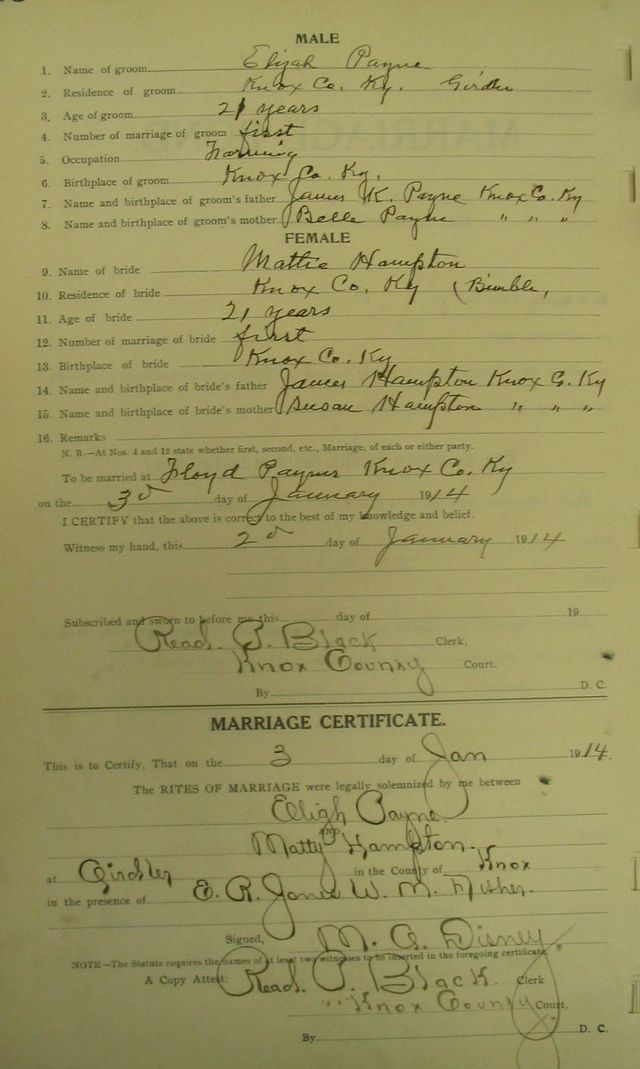 MALE
1. Name of groom Elijah Payne
2. Residence of groom Knox Co. Ky. Girdler
3. Age of groom 21 years
4. Number of marriage of groom first
5. Occupation Farming
6. Birthplace of groom Knox Co. Ky.
7. Name and birthplace of groom's father James K. Payne Knox Co. Ky
8. Name and birthplace of groom's mother Belle Payne " " "
FEMALE
9. Name of bride Mattie Hampton
10. Residence of bride Knox Co. Ky (Bimble,
11. Age of bride 21 years
12. Number of marriage of bride first
13. Birthplace of bride Knox Co. Ky
14. Name and birthplace of bride's father James Hampton Knox C. Ky
15. Name and birthplace of bride's mother Susan Hampton " " "
16. Remarks
N. B.—At Nos. 4 and 12 state whether first, second, etc., Marriage, of each or either party.
To be married at Floyd Paynes Knox Co. Ky
on the 3d day of January 1914
I CERTIFY that the above is correct to the best of my knowledge and belief.
Witness my hand, this 2d day of January 1914
Subscribed and sworn to before me this day of 19
Read. P. Black Clerk,
Knox County Court.
By D. C.
MARRIAGE CERTIFICATE.
This is to Certify, That on the 3 day of Jan 1914.
The RITES OF MARRIAGE were legally solemnized by me between
Elligh Payne.
AND
Matty Hampton.
at Girdler in the County of Knox
in the presence of E. R. Jones W. M. Fisher.
Signed, M. C. Disney
NOTE—The Statute requires the names of at least two witnesses to be inserted in the foregoing certificate.
A Copy Attest: Read. P. Black. Clerk
Knox County Court.
By D. C.